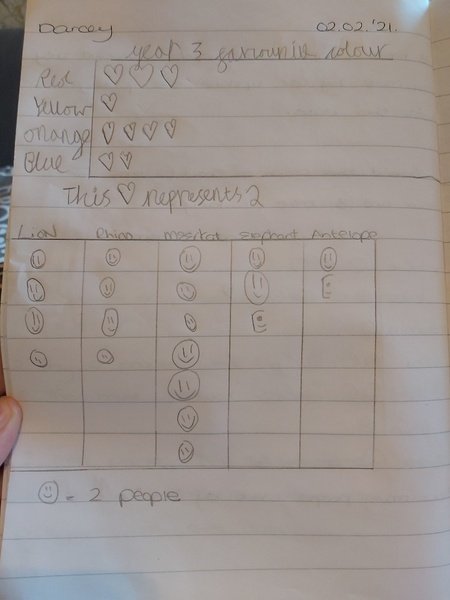 Darcey 02.02.'21.
year 3 favourite colour
Red
Yellow
orange
Blue
This ♡ represents 2
Lion Rhino meerkat Elephant Antelope
☺ = 2 people